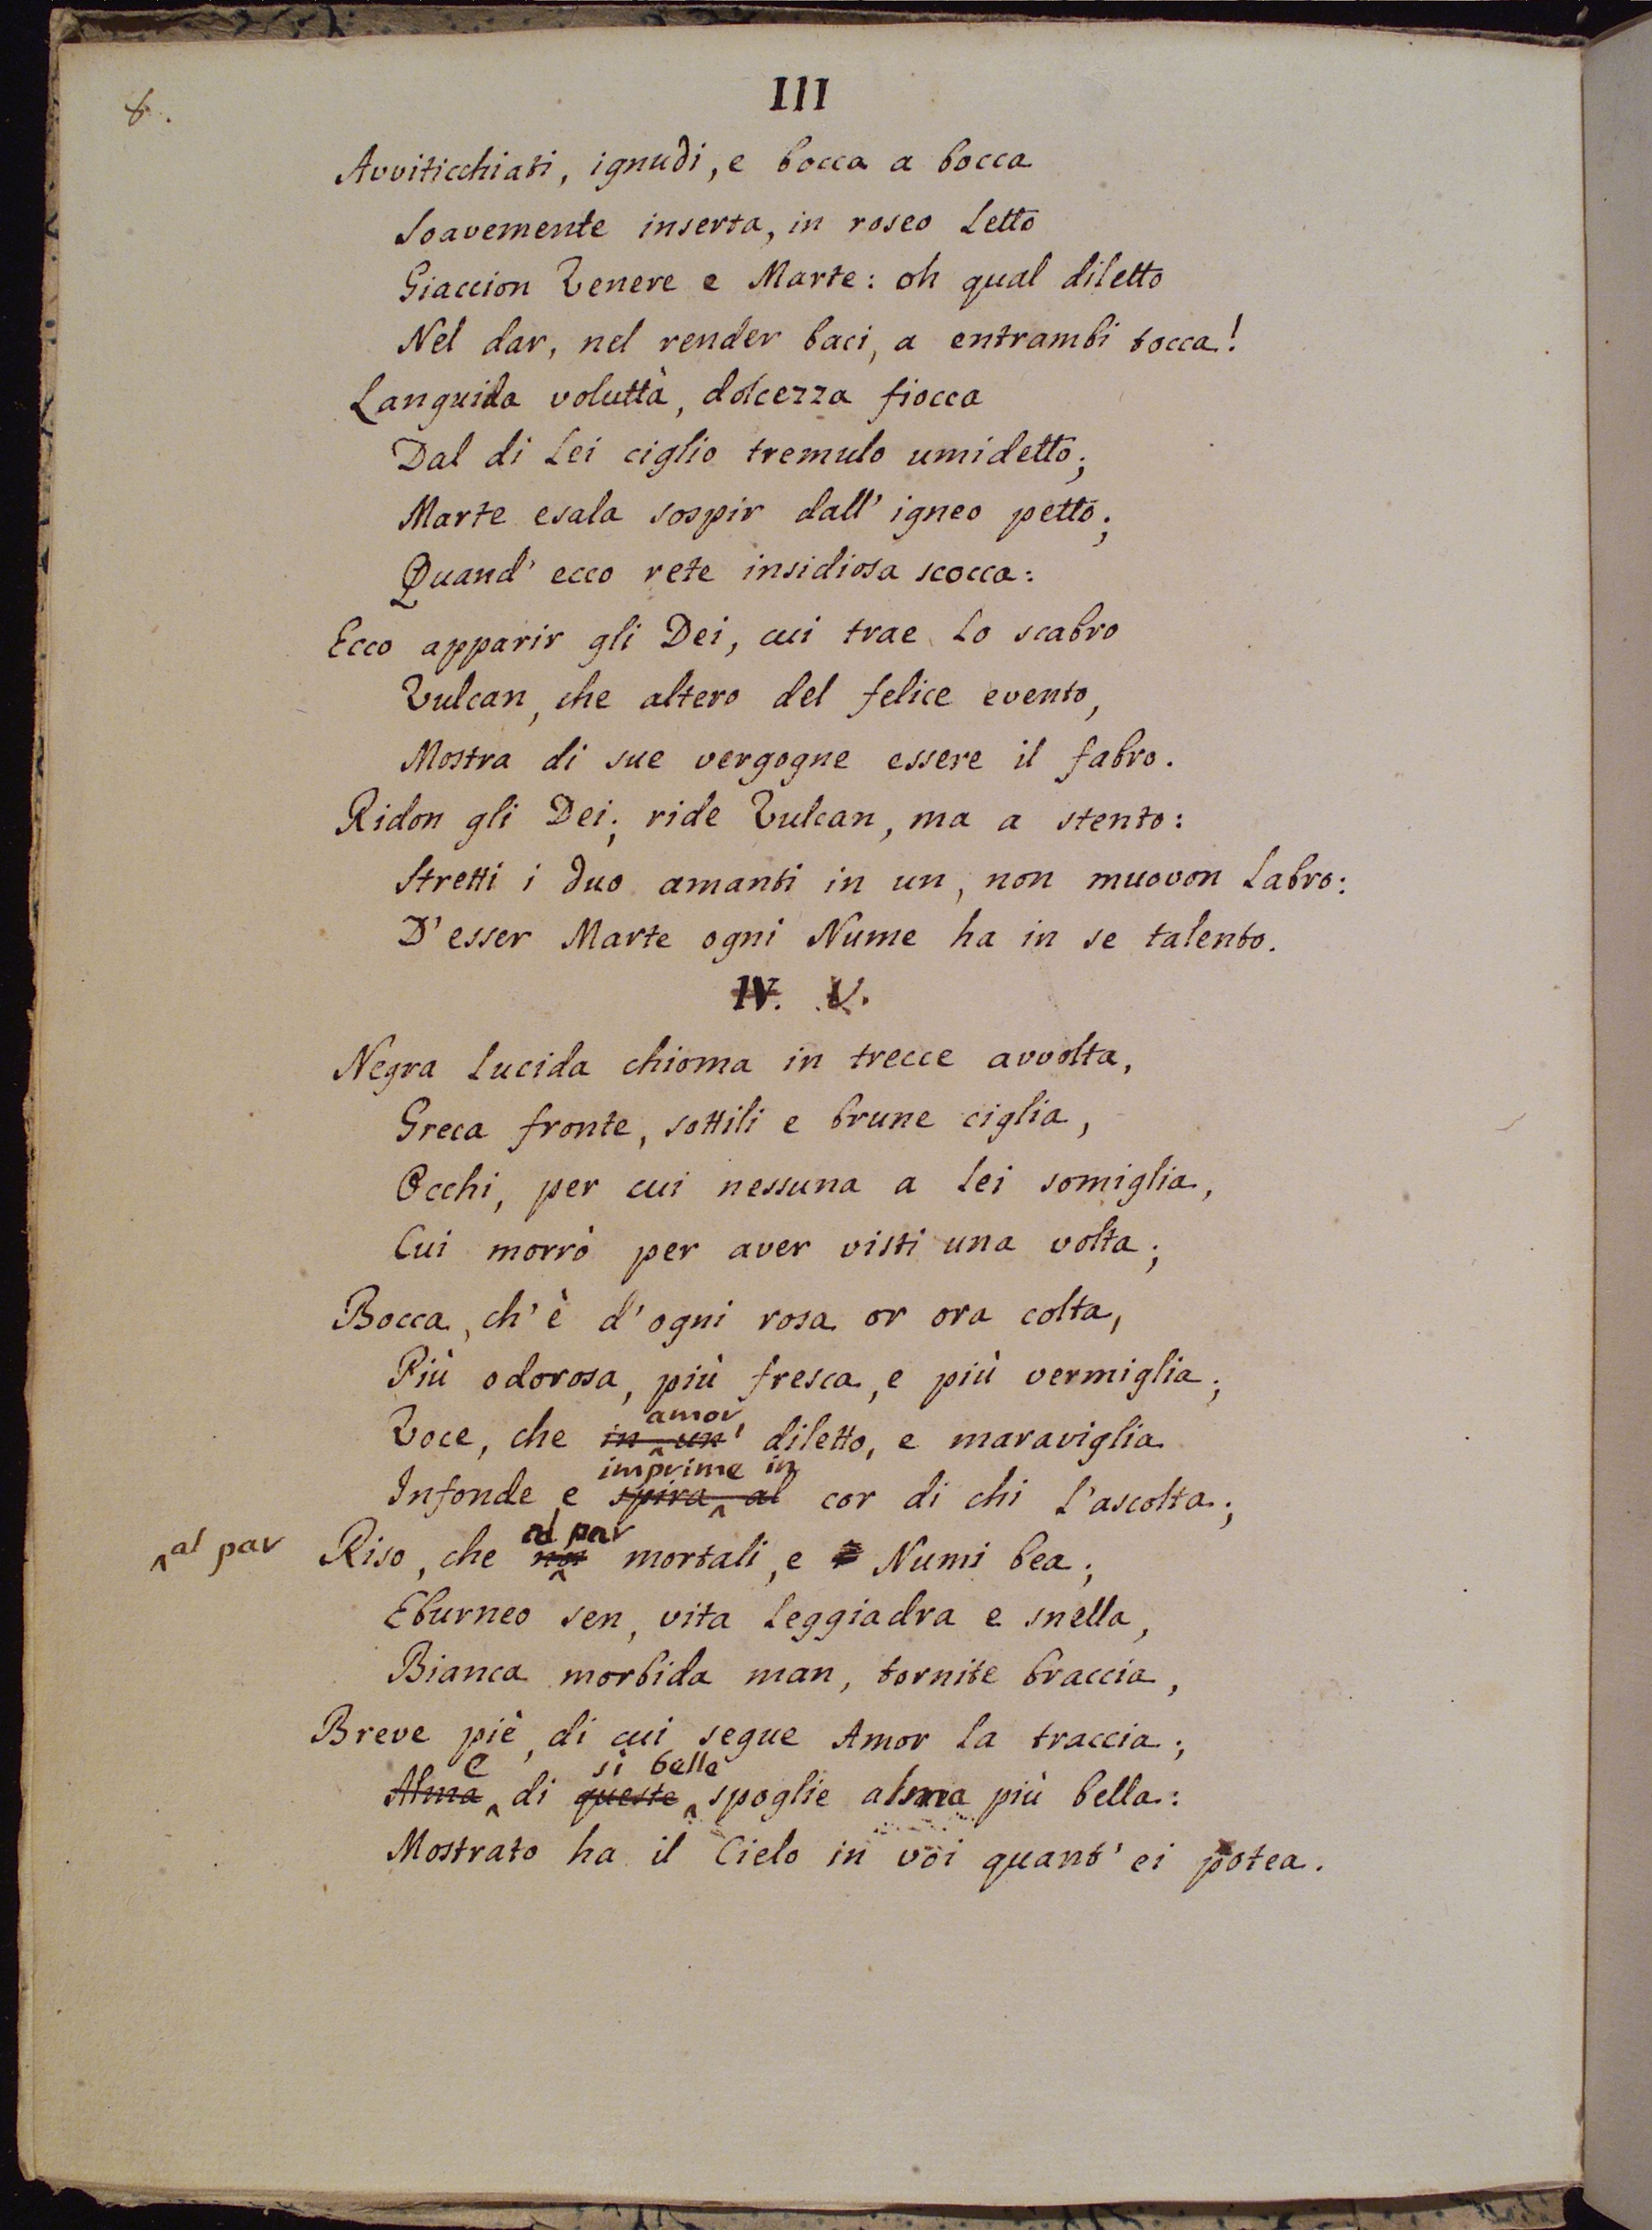 8.
III
Avviticchiati, ignudi, e bocca a bocca
Soavemente inserta, in roseo letto
Giaccion Venere e Marte: oh qual diletto
Nel dar, nel render baci, a entrambi tocca!
Languida voluttà, dolcezza fiocca
Dal di lei ciglio tremulo umidetto;
Marte esala sospir dall' igneo petto;
Quand' ecco rete insidiosa scocca:
Ecco apparir gli Dei, cui trae lo scabro
Vulcan, che altero del felice evento,
Mostra di sue vergogne essere il fabro.
Ridon gli Dei; ride Vulcan, ma a stento:
Stretti i duo amanti in un, non muovon labro:
D'esser Marte ogni Nume ha in se talento.
IV. V.
Negra lucida chioma in trecce avvolta,
Greca fronte, sottili e brune ciglia,
Occhi, per cui nessuna a lei somiglia,
Cui morrò per aver visti una volta;
Bocca, ch'è d'ogni rosa or ora colta,
Più odorosa, più fresca, e più vermiglia;
amor,
Voce, che in un' diletto, e maraviglia
imprime in
Infonde, e spira al cor di chi l'ascolta;
al par
al par Riso, che non mortali, e Numi bea;
Eburneo sen, vita leggiadra e snella,
Bianca morbida man, tornite braccia,
Breve piè, di cui segue Amor la traccia;
e sì belle
Alma di queste spoglie alma più bella:
Mostrato ha il Cielo in voi quant' ei potea.